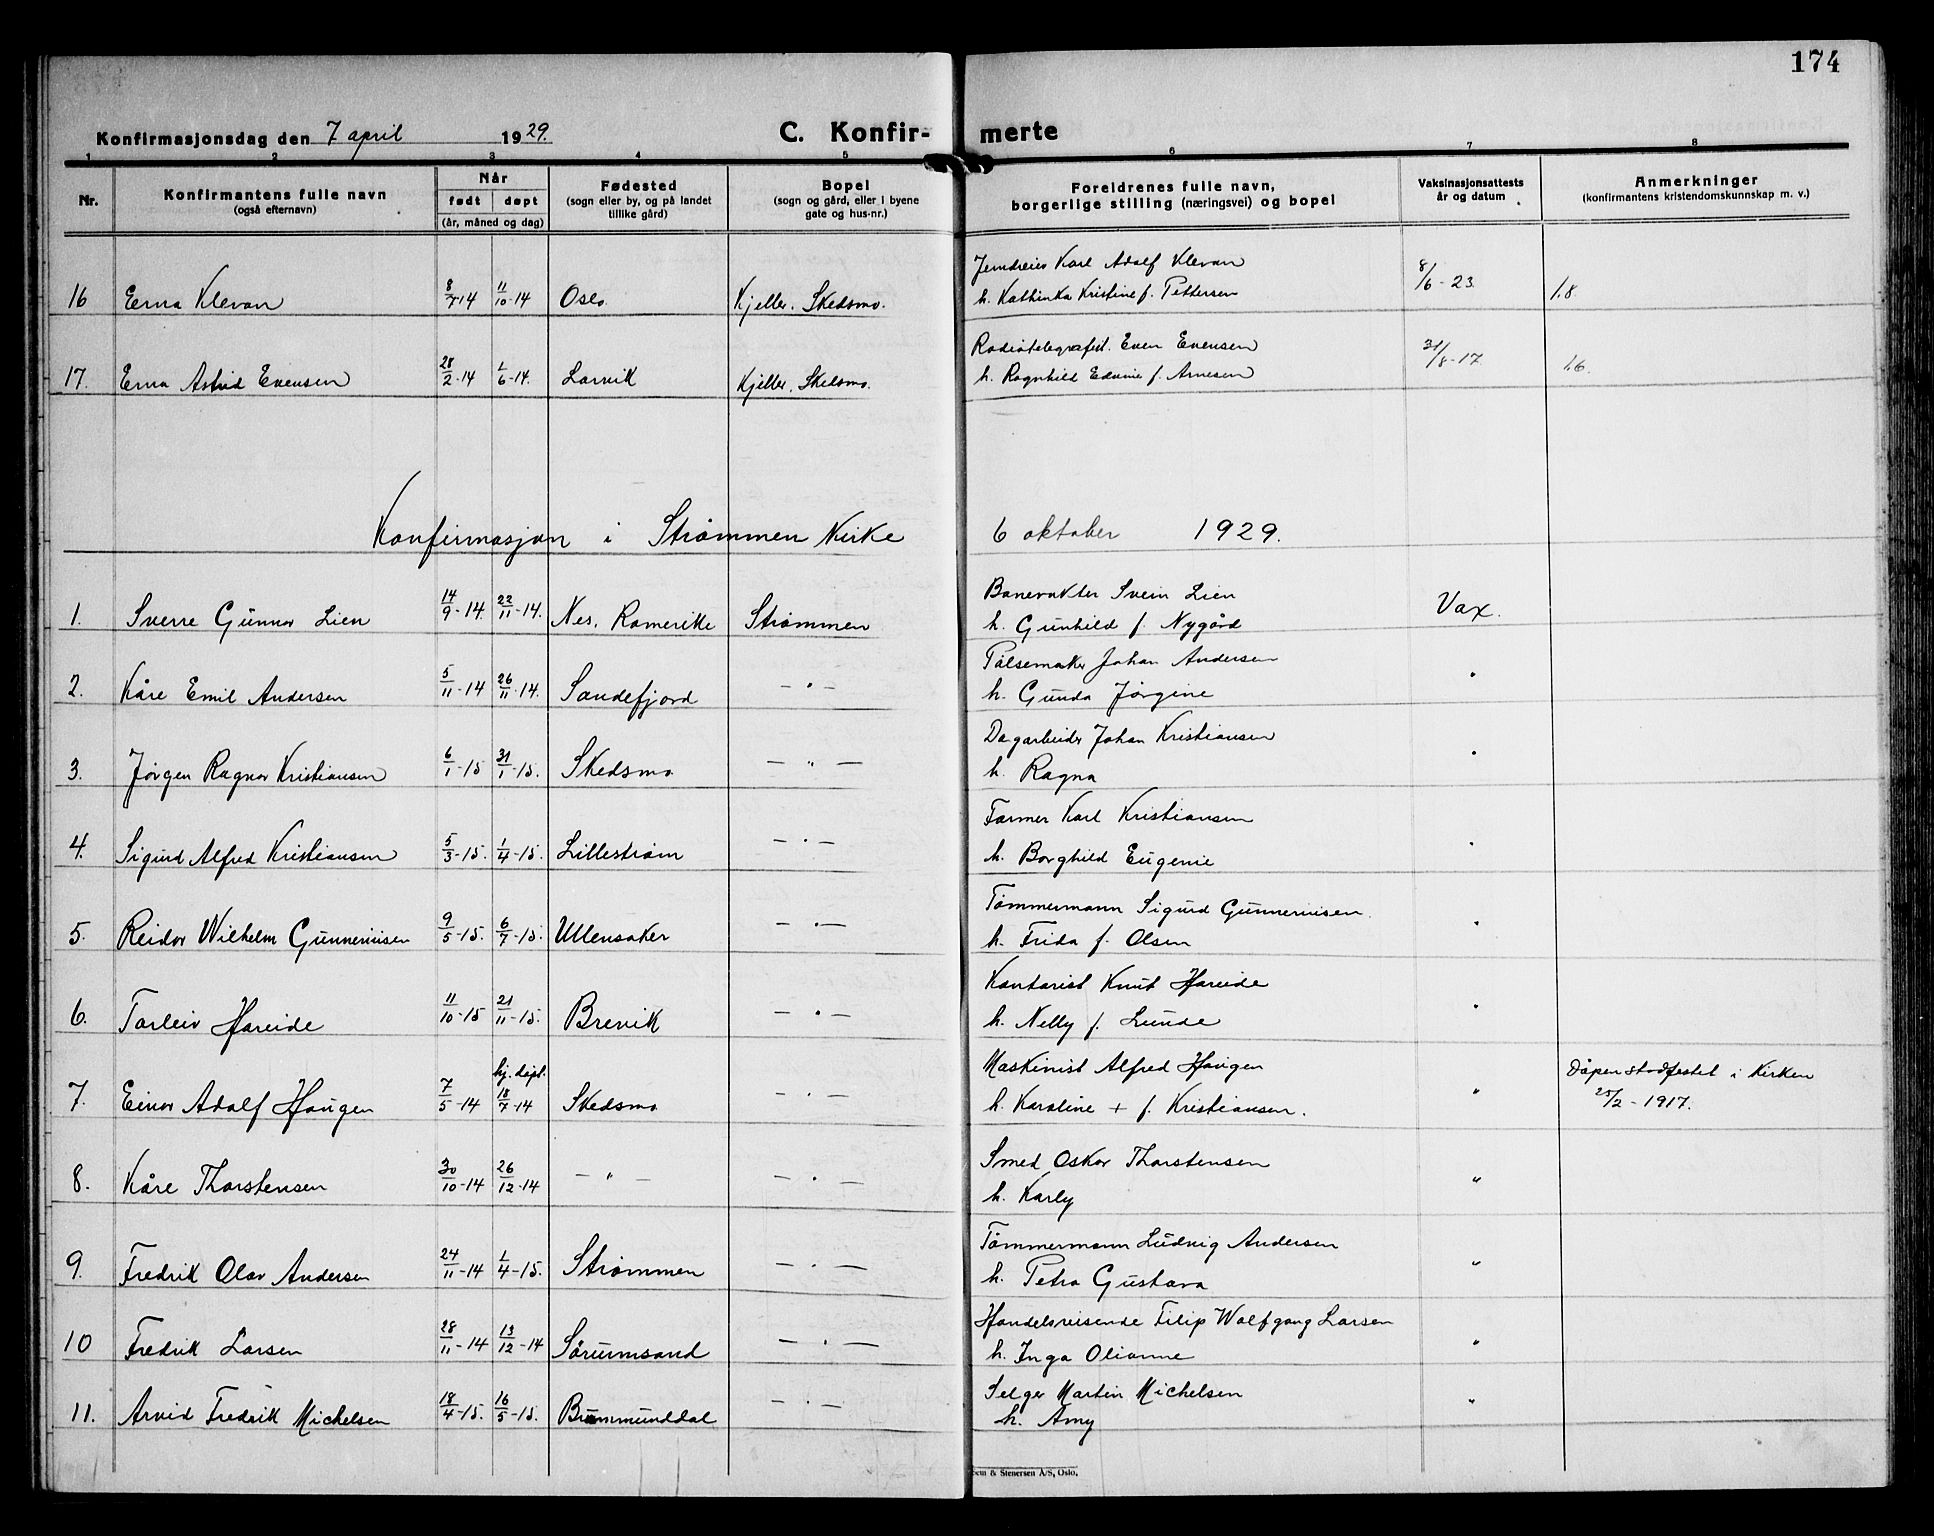 174
Konfirmasjonsdag den 7 april 1929. C. Konfir- merte
1 2 3 4 5 6 7 8
Nr. Konfirmantens fulle navn (også efternavn) Når født døpt (år, måned og dag) Fødested (sogn eller by, og på landet tillike gård) Bopel (sogn og gård, eller i byene gate og hus-nr.) Foreldrenes fulle navn, borgerlige stilling (næringsvei) og bopel Vaksinasjonsattests år og datum Anmerkninger (konfirmantens kristendomskunnskap m. v.)
Jerndreier Karl Adolf Klevan
16 Erna Klevan 8/7 14 11/10-14 Oslo Kjeller. Skedsmo. h. Kathinka Kristine f. Pettersen 8/6-23. 1.8.
Radiotelegrafist. Even Evensen
17. Erna Astrid Evensen 28/2-14 1/6-14. Larvik Kjeller. Skedsmo. h. Ragnhild Edvine f. Arnesen 31/8-17 1.6.
Konfirmasjon i Strømmen Kirke 6 oktober 1929.
Banevakter Svein Lien
1. Sverre Gunnar Lien 14/9-14. 22/11-14. Nes, Romerike Strømmen h. Gunhild f. Nygård Vax.
Pølsemaker Johan Andersen
2. Kåre Emil Andersen 5/11-14 26/11-14. Sandefjord - " - h. Gunda Jørgine "
Dagarbeider Johan Kristiansen
3. Jørgen Ragnar Kristiansen 6/1-15 31/1-15. Skedsmo - " - h. Ragna "
Farmer Karl Kristiansen
4. Sigurd Alfred Kristiansen 5/3-15. 1/4-15. Lillestrøm - " - h. Borghild Eugenie "
Tømmermann Sigurd Gunneriusen.
5. Reidar Wilhelm Gunneriusen 9/5-15. 6/7-15. Ullensaker - " - h. Frida f. Olsen "
Kontorist Knut Hareide
6. Torleiv Hareide 11/10-15 21/11-15. Brevik - " - h. Nelly f. Lunde "
hj. døpt. Maskinist Alfred Haugen Dåpen stadfestet i Kirken
7. Einar Adolf Haugen 7/5-14 18/7-14 Skedsmo - " - h. Karoline + f. Kristiansen. " 25/2-1917.
Smed Oskar Thorstensen
8. Kåre Thorstensen 30/10-14 26/12-14 - " - - " - h. Karly "
Tømmermann Ludvig Andersen
9. Fredrik Olav Andersen 24/11-14 1/4-15. Strømmen - " - h. Petra Gustava "
Handelsreisende Filip Wolfgang Larsen
10 Fredrik Larsen 28/11-14 13/12-14 Sørumsand - " - h. Inga Olianne "
Selger Martin Michelsen
11. Arvid Fredrik Michelsen 18/4-15. 16/5-15. Brummunddal - " - h. Amy "
& Stenersen A/S, Oslo.